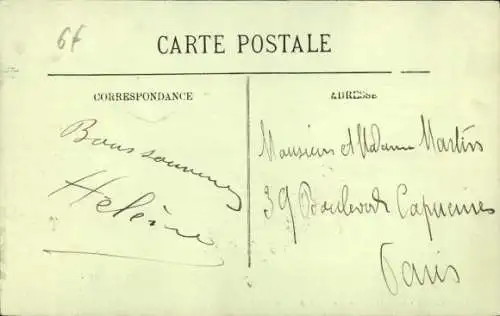 6f
CARTE POSTALE
CORRESPONDANCE
Bons souvenirs
Helène
ADRESSE
Monsieur et Madame Martin
39 Boulevard Capucines
Paris